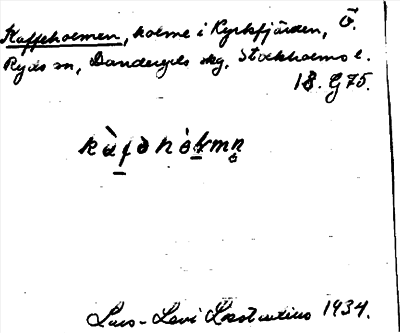 Kaffeholmen, holme i Kyrkfjärden, Ö.
Ryds sn, Danderyds skg, Stockholms l.
18. G75.
kàfəhòlmn̥
Lars-Levi Læstadius 1934.